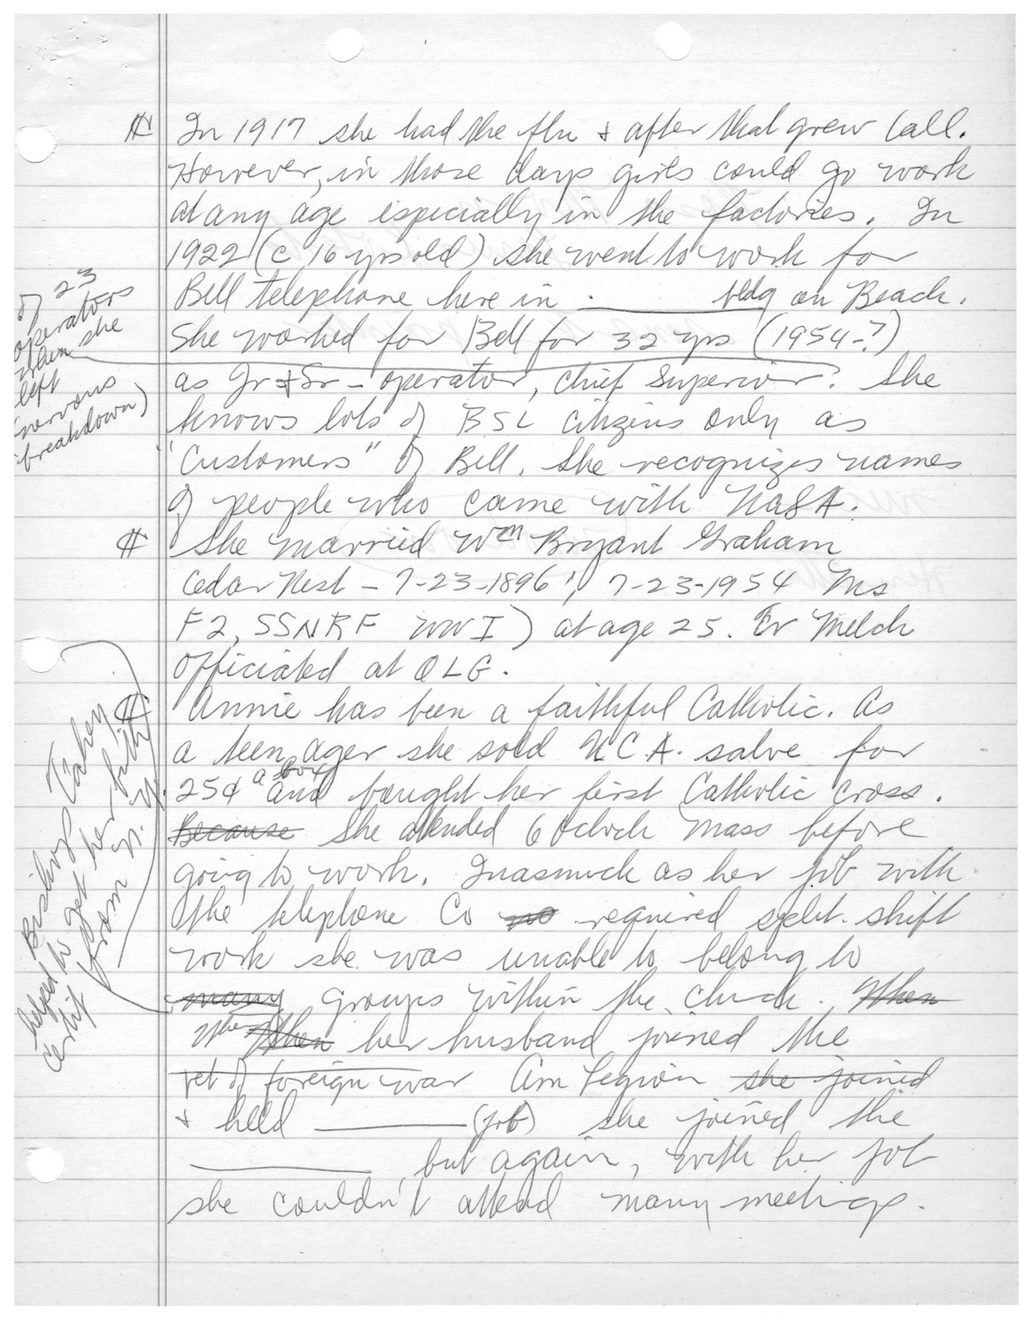 ¶ In 1917 she had the flu & after that grew tall.
However, in those days girls could go work
at any age especially in the factories. In
1922 (c 16 yrs old) she went to work for
Bell telephone here in . ________ bldg on Beach.
She worked for Bell for 32 yrs (1954-?)
of 23
operators
when she
left
(nervous
breakdown)
as Jr & Sr - operator, chief Superior. She
knows lots of BSL citizens only as
"Customers" of Bell. She recognizes names
of people who came with NASA.
¶ She married Wm Bryant Graham
Cedar Rest - 7-23-1896, 7-23-1954 Ms
F2, SSNRF WWI) at age 25. Fr Melch
officiated at OLG.
¶ Annie has been a faithful Catholic. As
a teen ager she sold salve for
25¢ a box and bought her first Catholic cross.
Because She attended 6 oclock mass before
going to work. Inasmuch as her job with
the telephone Co no required split-shift
work she was unable to belong to
many groups within the church. When
When Then her husband joined the
vet of foreign war Am Legion she joined
& held ________ (job) she joined the
________ but again, with her job
she couldn't attend many meetings.
Bishop
helped to get her birth
certif from N.Y.